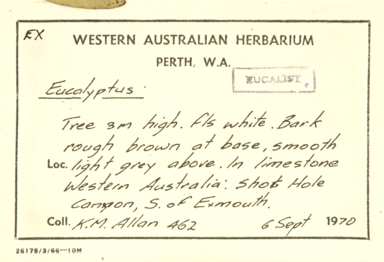 EX
WESTERN AUSTRALIAN HERBARIUM
PERTH, W.A.
EUCALIST
Eucalyptus.
Tree 3m high. Fls white. Bark
rough brown at base, smooth
Loc. light grey above. In limestone
Western Australia: Shot Hole
Canyon, S. of Exmouth.
Coll. K.M. Allan 462 6 Sept 1970
26179/3/66—10M